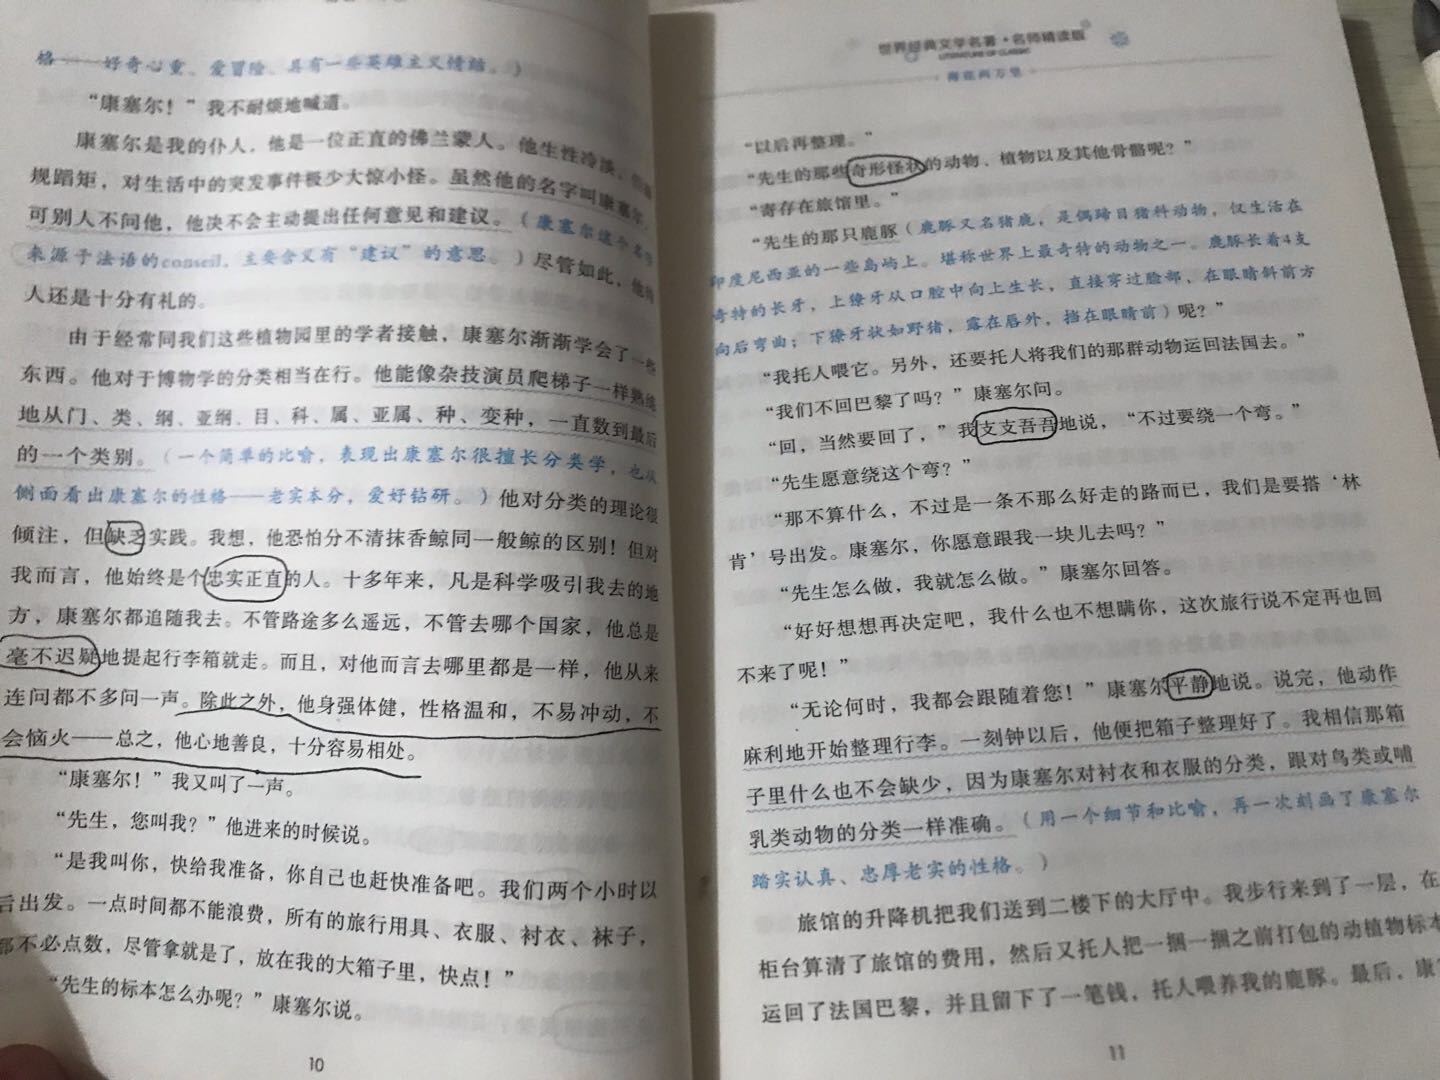 格——好奇心重、爱冒险、具有一些英雄主义情结。）
“康塞尔！”我不耐烦地喊道。
康塞尔是我的仆人，他是一位正直的佛兰蒙人。他生性冷淡，
规蹈矩，对生活中的突发事件极少大惊小怪。虽然他的名字叫康塞尔，
可别人不问他，他决不会主动提出任何意见和建议。（康塞尔这个名字
来源于法语的conseil，主要含义有“建议”的意思。）尽管如此，他待
人还是十分有礼的。
由于经常同我们这些植物园里的学者接触，康塞尔渐渐学会了一些
东西。他对于博物学的分类相当在行。他能像杂技演员爬梯子一样熟练
地从门、类、纲、亚纲、目、科、属、亚属、种、变种，一直数到最后
的一个类别。（一个简单的比喻，表现出康塞尔很擅长分类学，也从
侧面看出康塞尔的性格——老实本分，爱好钻研。）他对分类的理论很
倾注，但缺乏实践。我想，他恐怕分不清抹香鲸同一般鲸的区别！但对
我而言，他始终是个忠实正直的人。十多年来，凡是科学吸引我去的地
方，康塞尔都追随我去。不管路途多么遥远，不管去哪个国家，他总是
毫不迟疑地提起行李箱就走。而且，对他而言去哪里都是一样，他从来
连问都不多问一声。除此之外，他身强体健，性格温和，不易冲动，不
会恼火——总之，他心地善良，十分容易相处。
“康塞尔！”我又叫了一声。
“先生，您叫我？”他进来的时候说。
“是我叫你，快给我准备，你自己也赶快准备吧。我们两个小时以
后出发。一点时间都不能浪费，所有的旅行用具、衣服、衬衣、袜子，
都不必点数，尽管拿就是了，放在我的大箱子里，快点！”
“先生的标本怎么办呢？”康塞尔说。
10
世界经典文学名著·名师精读版
LITERATURE OF CLASSIC
海底两万里
“以后再整理。”
“先生的那些奇形怪状的动物、植物以及其他骨骼呢？”
“寄存在旅馆里。”
“先生的那只鹿豚（鹿豚又名猪鹿，是偶蹄目猪科动物，仅生活在
印度尼西亚的一些岛屿上。堪称世界上最奇特的动物之一。鹿豚长着4支
奇特的长牙，上獠牙从口腔中向上生长，直接穿过脸部，在眼睛斜前方
向后弯曲；下獠牙状如野猪，露在唇外，挡在眼睛前）呢？”
“我托人喂它。另外，还要托人将我们的那群动物运回法国去。”
“我们不回巴黎了吗？”康塞尔问。
“回，当然要回了，”我支支吾吾地说，“不过要绕一个弯。”
“先生愿意绕这个弯？”
“那不算什么，不过是一条不那么好走的路而已，我们是要搭‘林
肯’号出发。康塞尔，你愿意跟我一块儿去吗？”
“先生怎么做，我就怎么做。”康塞尔回答。
“好好想想再决定吧，我什么也不想瞒你，这次旅行说不定再也回
不来了呢！”
“无论何时，我都会跟随着您！”康塞尔平静地说。说完，他动作
麻利地开始整理行李。一刻钟以后，他便把箱子整理好了。我相信那箱
子里什么也不会缺少，因为康塞尔对衬衣和衣服的分类，跟对鸟类或哺
乳类动物的分类一样准确。（用一个细节和比喻，再一次刻画了康塞尔
踏实认真、忠厚老实的性格。）
旅馆的升降机把我们送到二楼下的大厅中。我步行来到了一层，在
柜台算清了旅馆的费用，然后又托人把一捆一捆之前打包的动植物标本
运回了法国巴黎，并且留下了一笔钱，托人喂养我的鹿豚。最后，康
11